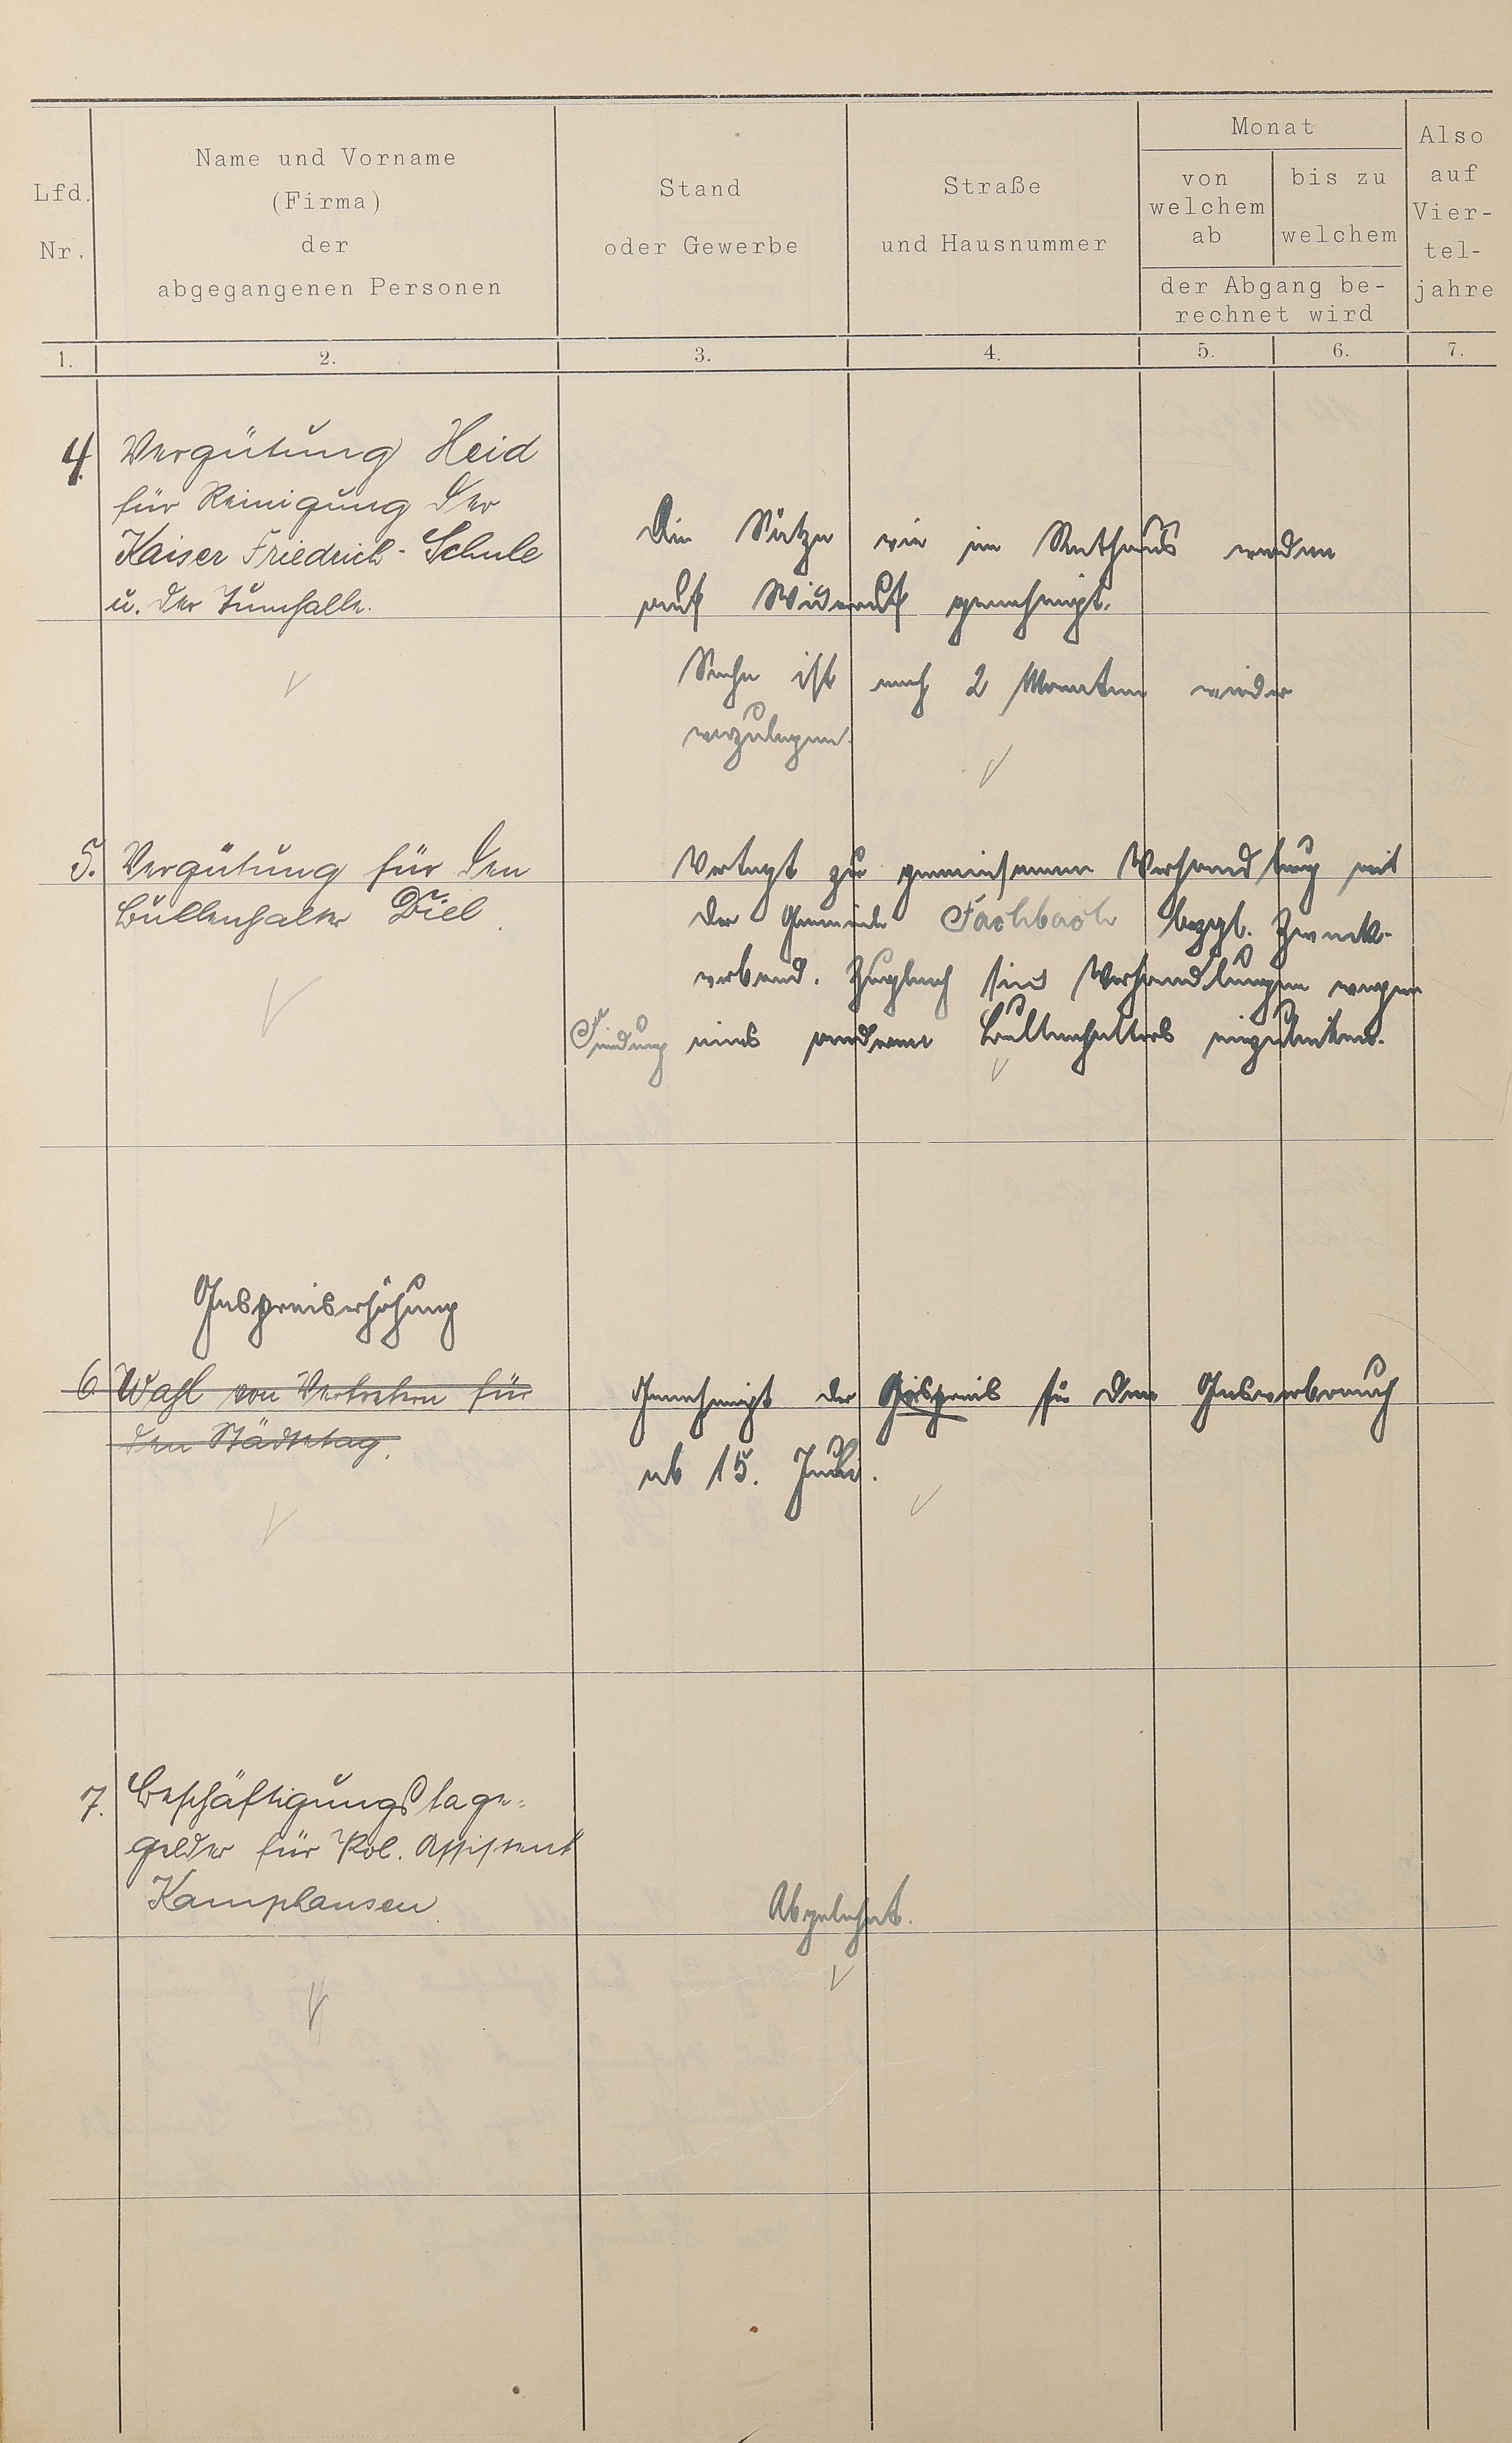 Lfd.
Nr.
Name und Vorname
(Firma)
der
abgegangenen Personen
Stand
oder Gewerbe
Straße
und Hausnummer
Monat
von
welchem
ab
bis zu
welchem
der Abgang be-
rechnet wird
Also
auf
Vier-
tel-
jahre
1.
2.
3.
4.
5.
6.
7.
4. Vergütung Heid
für Reinigung der
Kaiser Friedrich-Schule
u. der Turnhalle.
Die Sätze wie im Rathaus werden
auf Widerruf genehmigt.
Sache ist nach 2 Monaten wieder
vorzulegen.
5. Vergütung für den
Bullenhalter Diel
Vertagt zu gemeinsamen Verhandlung mit
der Gemeinde Fachbach bezgl. Zweck-
verband. Zugleich sind Verhandlungen wegen
Findung eines anderen Bullenhalters einzuleiten.
Gaspreiserhöhung
6. Wahl von Vertretern für
den Städtetag.
Genehmigt der Gaspreis für den Gasverbrauch
ab 15. Juli.
7. Beschäftigungstage-
gelder für Pol. Assistent
Kamphausen
Abgelehnt.